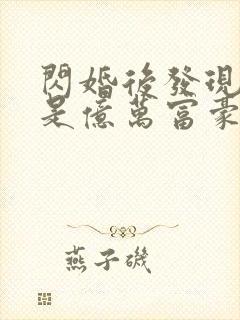 閃婚後發現
是億萬富豪
燕子磯